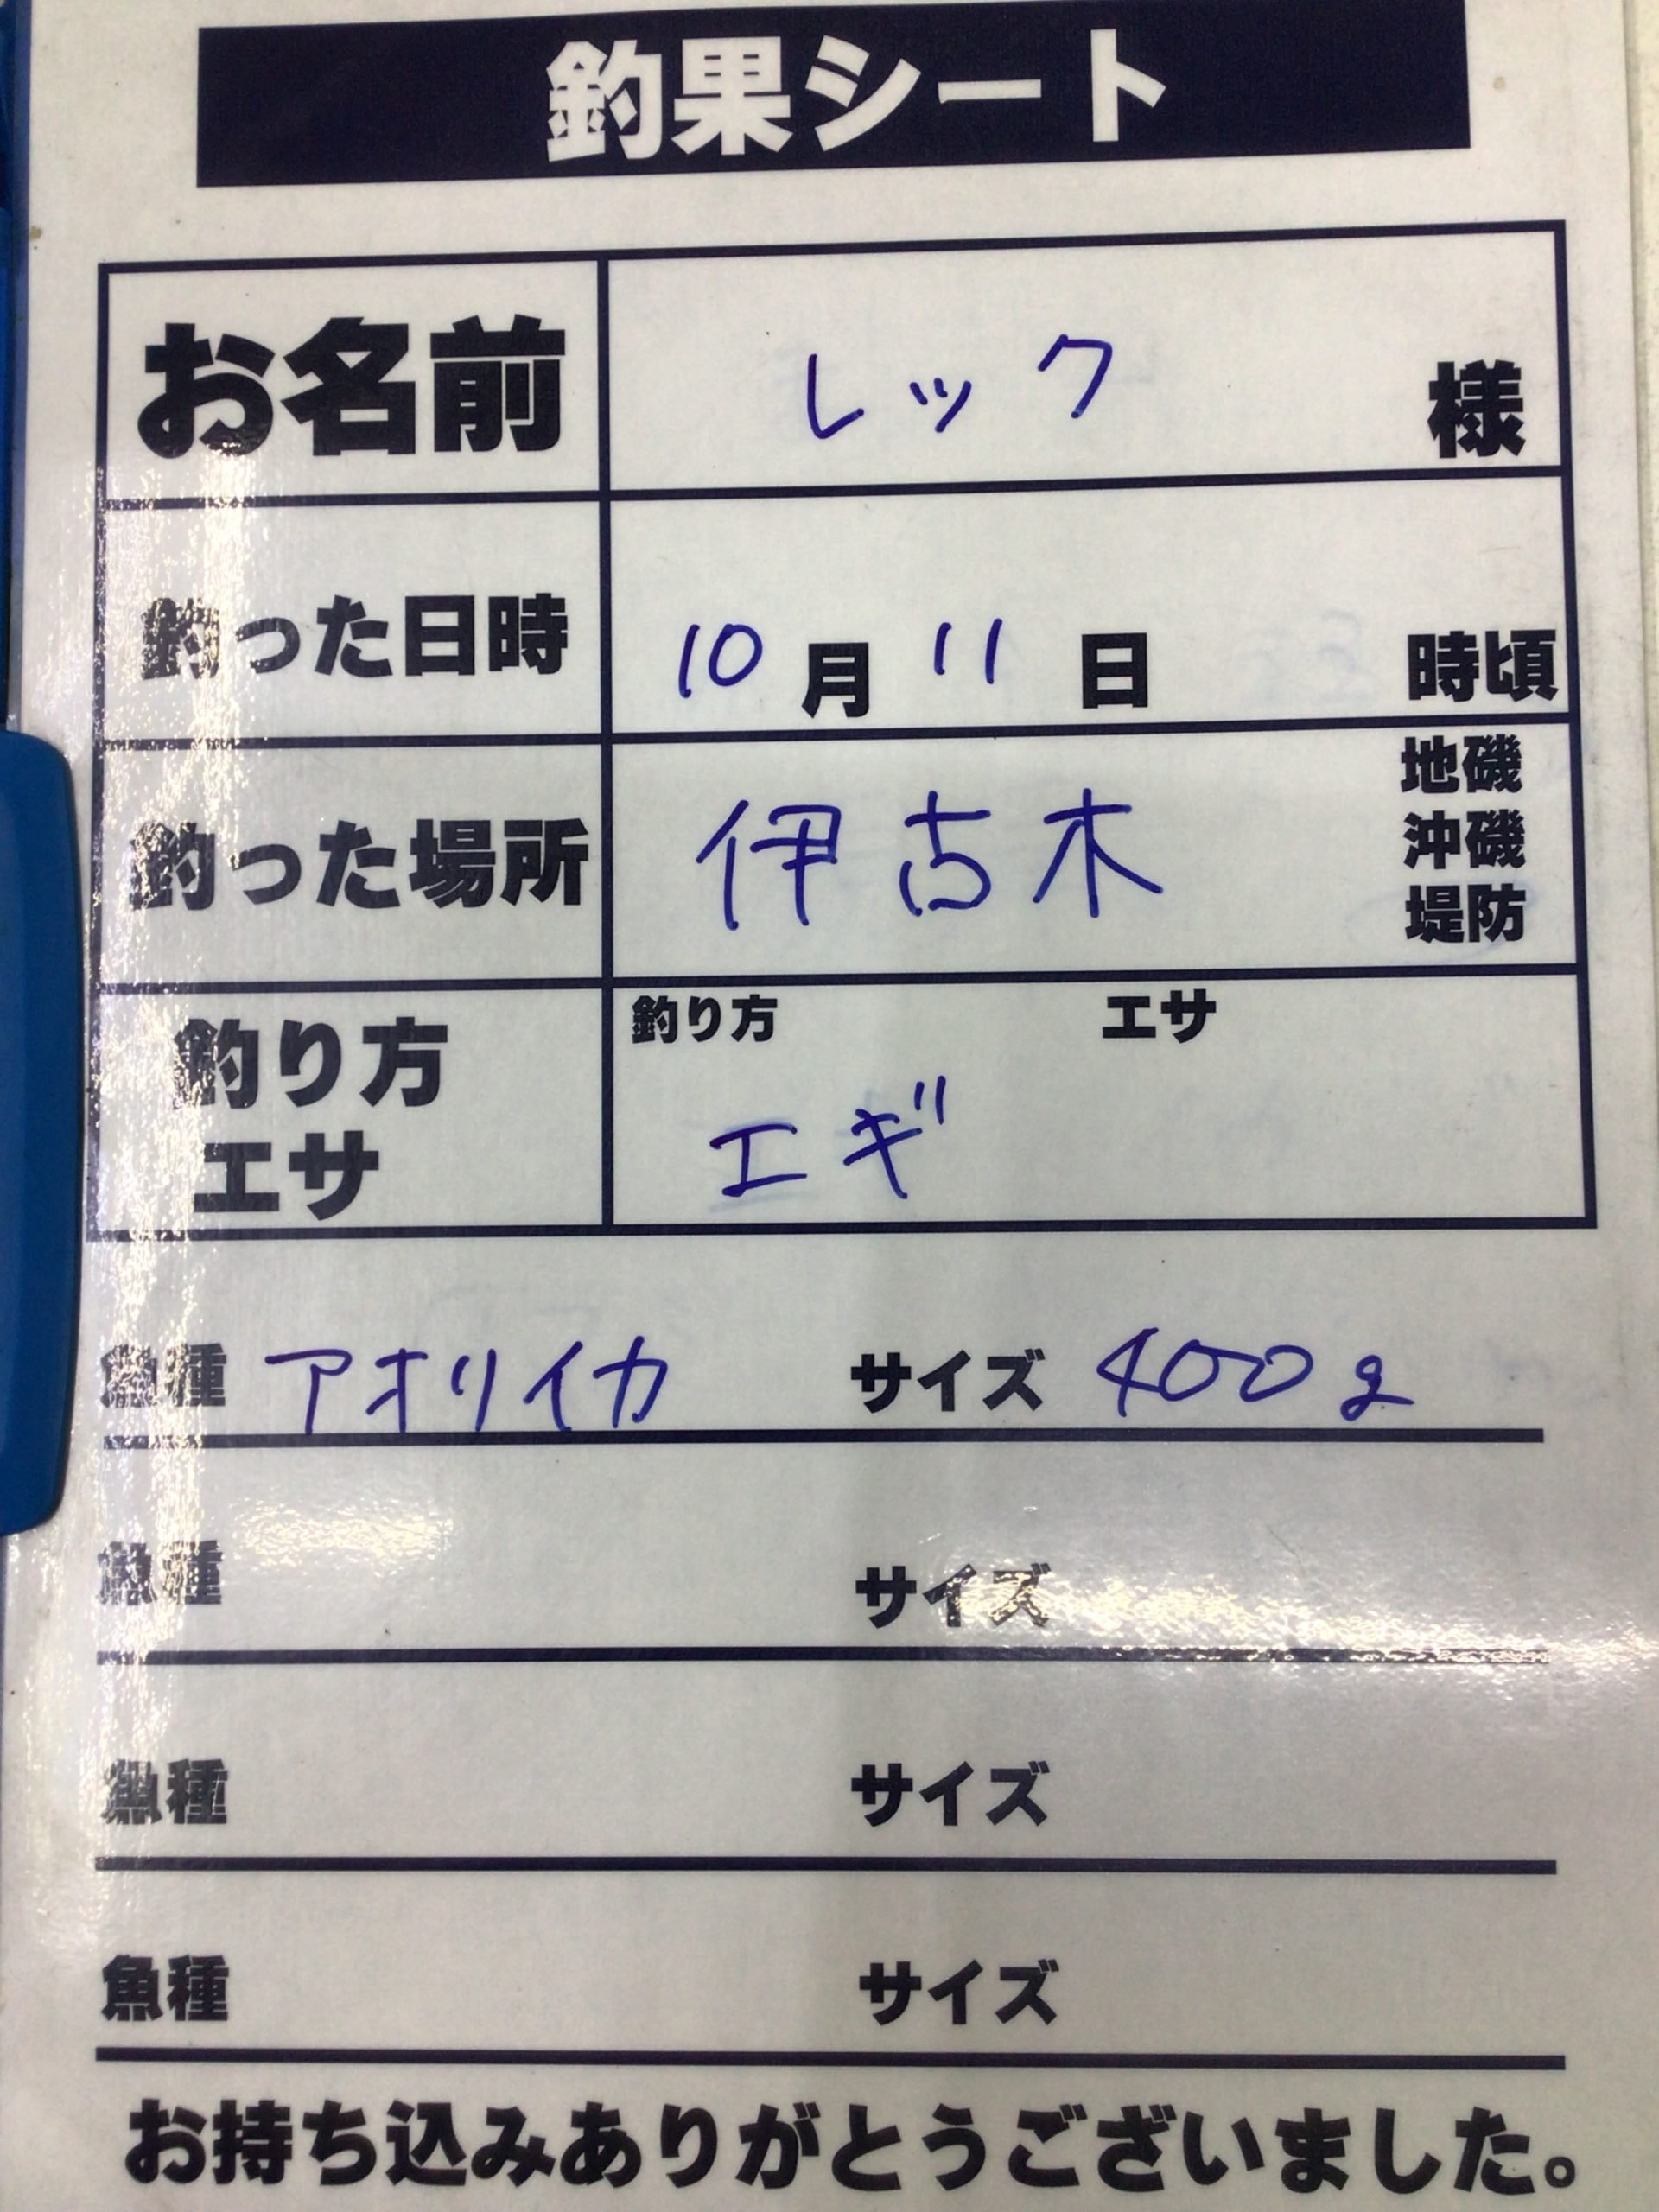 釣果シート
お名前 レック 様
釣った日時 10月11日 時頃
釣った場所 伊古木 地磯 沖磯 堤防
釣り方 エサ 釣り方 エサ
エギ
魚種 アオリイカ サイズ 400g
魚種 サイズ
魚種 サイズ
魚種 サイズ
お持ち込みありがとうございました。